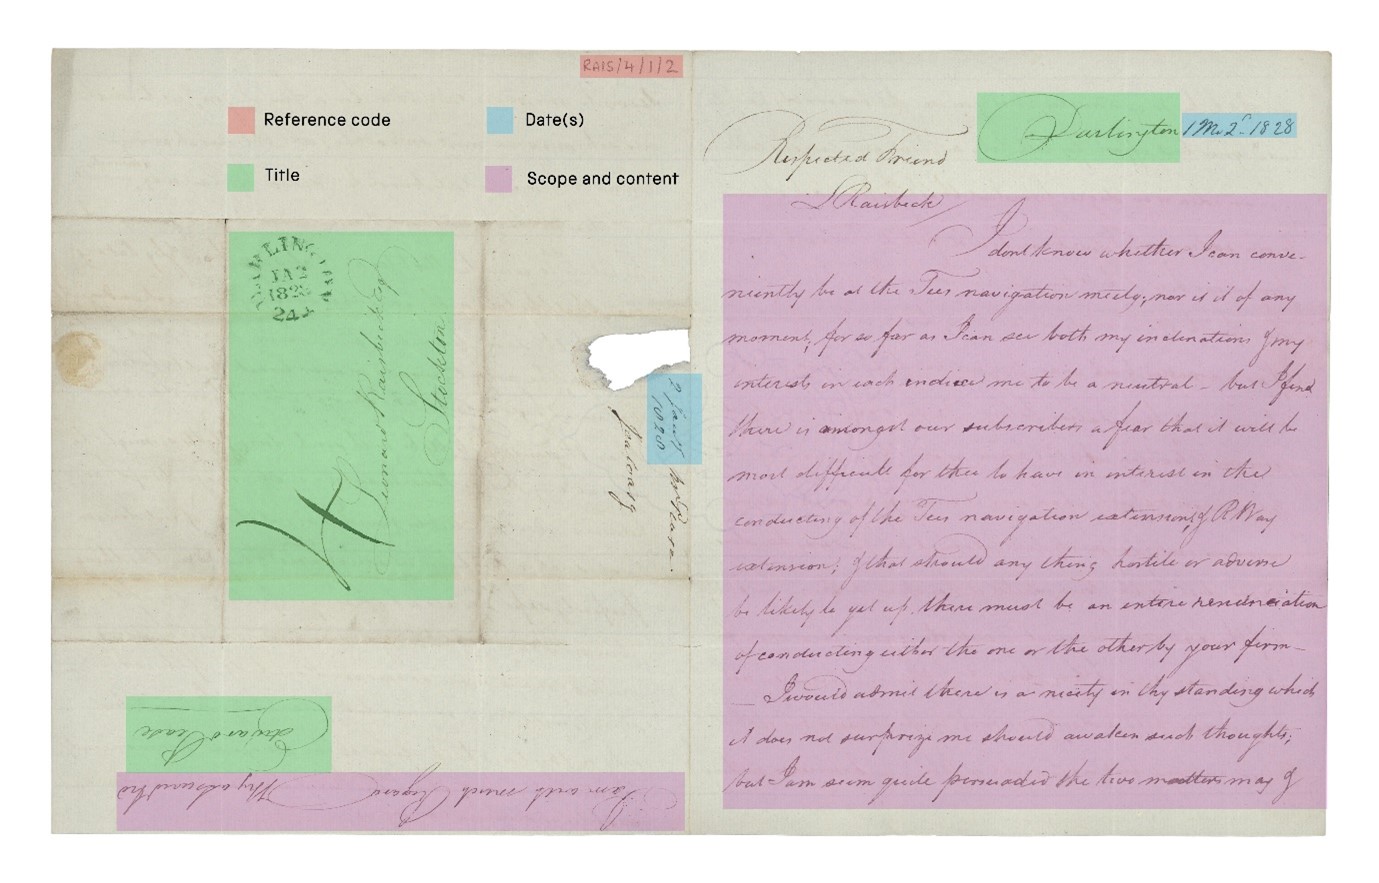 RAIS/4/1/2
Reference code
Date(s)
Title
Scope and content
DARLINGTON
JA 2
1828
241
4
Leonard Raisbeck Esqr
Stockton
2 Jany
1828
Edwd Pease
Jealousy
I am with much Regard
Thy assured frd
Edward Pease
Darlington 1 Mo 2d 1828
Respected Friend
L Raisbeck
I dont know whether I can conve-
niently be at the Tees navigation meetg, nor is it of any
moment, for so far as I can see both my inclinations & my
interests in each induce me to be a neutral - but I find
there is amongst our subscribers a fear that it will be
most difficult for thee to have an interest in the
conducting of the Tees navigation extension, & R Way
extension; & that should any thing hostile or adverse
be likely to get up, there must be an entire renunciation
of conducting either the one or the other by your firm -
- I would admit there is a nicety in thy standing which
it does not surprize me should awaken such thoughts;
but I am quite persuaded the two matters may &